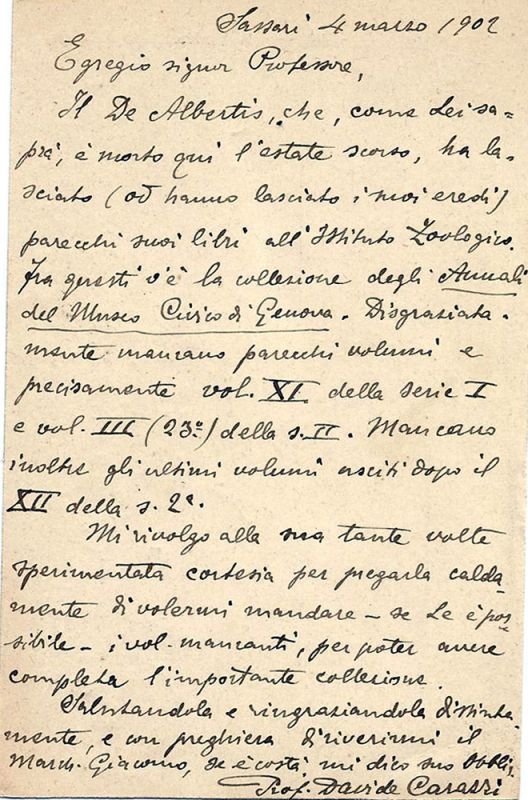 Sassari 4 marzo 1902
Egregio signor Professore,
Il De Albertis, che, come Lei sa-
prà, è morto qui l'estate scorso, ha la-
sciato (od hanno lasciato i suoi eredi)
parecchi suoi libri all'Istituto Zoologico.
Fra questi v'è la collezione degli Annali
del Museo Civico di Genova. Disgraziata-
mente mancano parecchi volumi e
precisamente vol. XI della serie I
e vol. III (23º) della s. II. Mancano
inoltre gli ultimi volumi usciti dopo il
XII della s. 2ª.
Mi rivolgo alla sua tante volte
sperimentata cortesia per pregarla calda-
mente di volermi mandare – se Le è pos-
sibile – i vol. mancanti, per poter avere
completa l'importante collezione.
Salutandola e ringraziandola distinta-
mente, e con preghiera di riverirmi il
March. Giacomo, se è costì, mi dico suo obbli.
Prof. Davide Carazzi